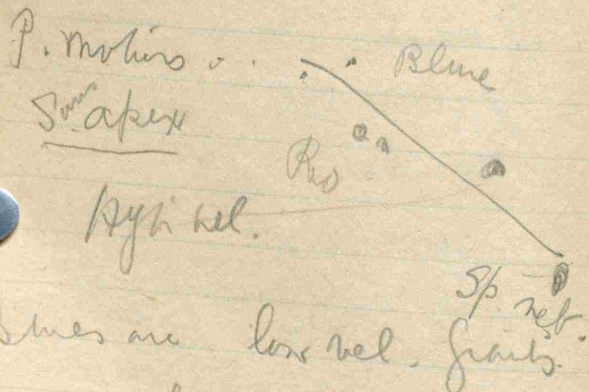 P. Motions Blue
Sun's apex
High vel.
Sp. neb.
are low vel. Giants.